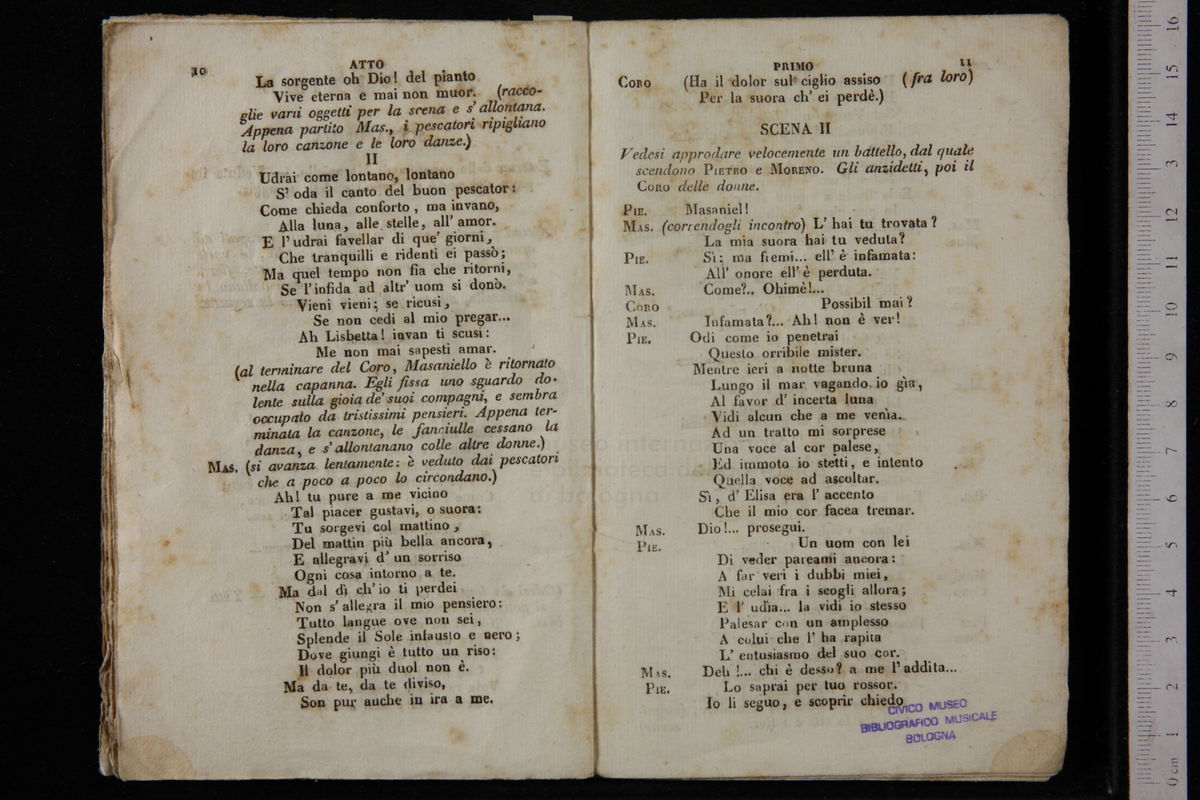 10
ATTO
La sorgente oh Dio! del pianto
Vive eterna e mai non muor. (racco-
glie varii oggetti per la scena e s' allontana.
Appena partito Mas., i pescatori ripigliano
la loro canzone e le loro danze.)
II
Udrai come lontano, lontano
S' oda il canto del buon pescator:
Come chieda conforto, ma invano,
Alla luna, alle stelle, all' amor.
E l' udrai favellar di que' giorni,
Che tranquilli e ridenti ei passò;
Ma quel tempo non fia che ritorni,
Se l' infida ad altr' uom si donò.
Vieni vieni; se ricusi,
Se non cedi al mio pregar...
Ah Lisbetta! invan ti scusi:
Me non mai sapesti amar.
(al terminare del Coro, Masaniello è ritornato
nella capanna. Egli fissa uno sguardo do-
lente sulla gioia de' suoi compagni, e sembra
occupato da tristissimi pensieri. Appena ter-
minata la canzone, le fanciulle cessano la
danza, e s' allontanano colle altre donne.)
MAS. (si avanza lentamente: è veduto dai pescatori
che a poco a poco lo circondano.)
Ah! tu pure a me vicino
Tal piacer gustavi, o suora:
Tu sorgevi col mattino,
Del mattin più bella ancora,
E allegravi d' un sorriso
Ogni cosa intorno a te.
Ma dal dì ch' io ti perdei
Non s' allegra il mio pensiero:
Tutto langue ove non sei,
Splende il Sole infausto e nero;
Dove giungi è tutto un riso:
Il dolor più duol non è.
Ma da te, da te diviso,
Son pur anche in ira a me.
PRIMO
11
CORO (Ha il dolor sul ciglio assiso (fra loro)
Per la suora ch' ei perdè.)
SCENA II
Vedesi approdare velocemente un battello, dal quale
scendono PIETRO e MORENO. Gli anzidetti, poi il
CORO delle donne.
PIE. Masaniel!
MAS. (correndogli incontro) L' hai tu trovata?
La mia suora hai tu veduta?
PIE. Sì: ma fremi... ell' è infamata:
All' onore ell' è perduta.
MAS. Come?.. Ohimè!...
CORO Possibil mai?
MAS. Infamata?... Ah! non è ver!
PIE. Odi come io penetrai
Questo orribile mister.
Mentre ieri a notte bruna
Lungo il mar vagando io gìa,
Al favor d' incerta luna
Vidi alcun che a me venìa.
Ad un tratto mi sorprese
Una voce al cor palese,
Ed immoto io stetti, e intento
Quella voce ad ascoltar.
Sì, d' Elisa era l' accento
Che il mio cor facea tremar.
MAS. Dio!... prosegui.
PIE. Un uom con lei
Di veder pareami ancora:
A far veri i dubbi miei,
Mi celai fra i scogli allora;
E l' udìa... la vidi io stesso
Palesar con un amplesso
A colui che l' ha rapita
L' entusiasmo del suo cor.
MAS. Deh!... chi è desso? a me l' addita...
PIE. Lo saprai per tuo rossor.
Io li seguo, e scoprir chiedo
CIVICO MUSEO
BIBLIOGRAFICO MUSICALE
BOLOGNA
museo interna
biblioteca de
di bologna
0 cm 1 2 3 4 5 6 7 8 9 10 11 12 13 14 15 16